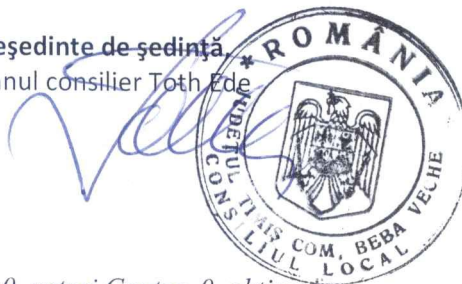 eședinte de ședință,
nul consilier Toth Ede
* ROMÂNIA
JUDEȚUL TIMIȘ COM. BEBA VECHE
CONSILIUL LOCAL